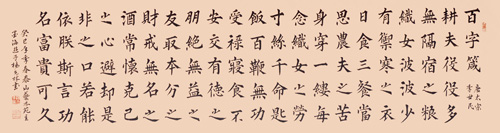 百字箴
唐太宗
李世民
耕夫役役多
無隔宿之粮
織女波波少
有禦寒之衣
日食三餐當
思農夫之苦
身穿一縷每
念織女之勞
寸絲千命匙
飯百鞭無功
受祿寢食不
安交有德之
朋絕無益之
友取本分之
財戒無名之
酒常懷克己
之心閉却是
非之口若能
依朕斯言功
名富貴可久
癸巳年季春泰山